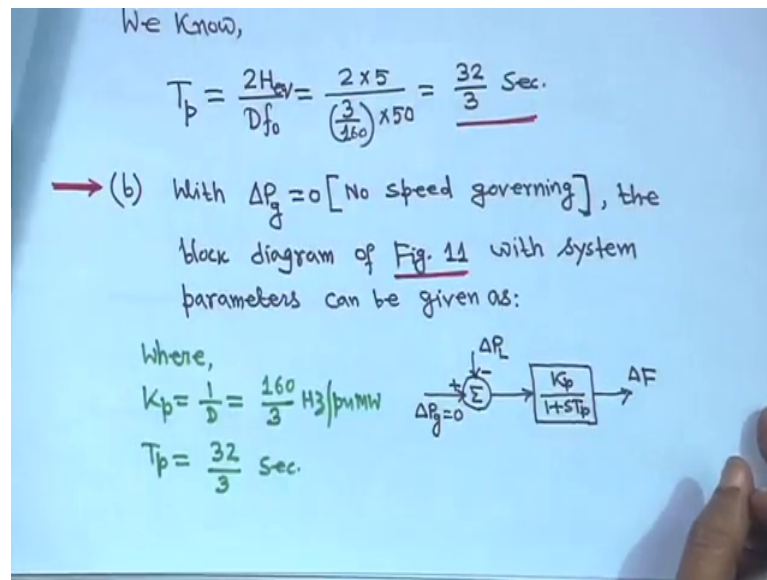 We Know,
Tp = 2Hev/Df₀ = 2×5/((3/160)×50) = 32/3 Sec.
→ (b) With ΔPg = 0 [No speed governing], the
block diagram of Fig. 11 with system
parameters can be given as:
Where,
Kp = 1/D = 160/3 HZ/puMW
Tp = 32/3 Sec.
ΔPL
+ Σ -
ΔPg=0
Kp/1+STp
ΔF